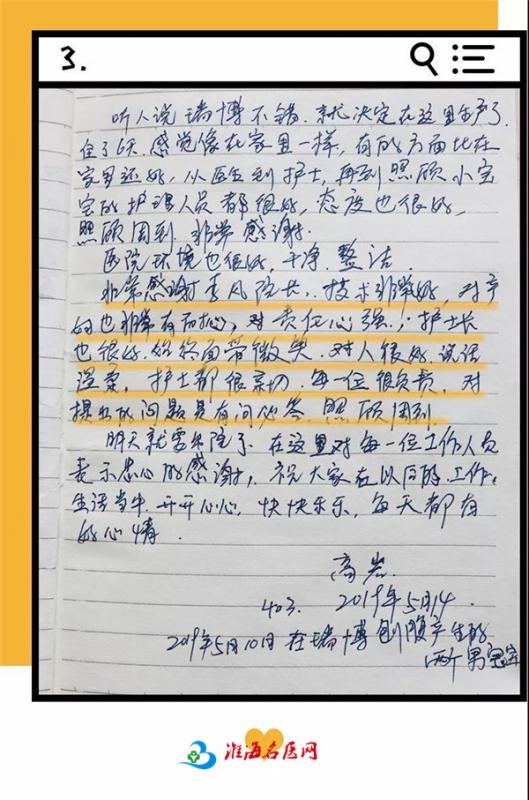 3.
听人说瑞博不错.就决定在这里生产了
住了6天.感觉像在家里一样,有的方面比在
家里还好,从医生到护士,再到照顾小宝
宝的护理人员都很好,态度也很好,
照顾周到.非常感谢.
医院环境也很好,干净.整洁.
非常感谢李凡院长.技术非常好,对产
妇也非常有耐心,对责任心强,护士长
也很好.始终面带微笑.对人很好.说话
温柔,护士都很亲切.每一位很负责,对
提出的问题是有问必答.照顾周到.
明天就要出院了.在这里对每一位工作人员
表示忠心的感谢,祝大家在以后的工作,
生活当中.开开心心,快快乐乐,每天都有
好心情.
高岩.
403. 2019年5月14.
2019年5月10日在瑞博剖腹产生的
两个男宝宝
淮海名医网